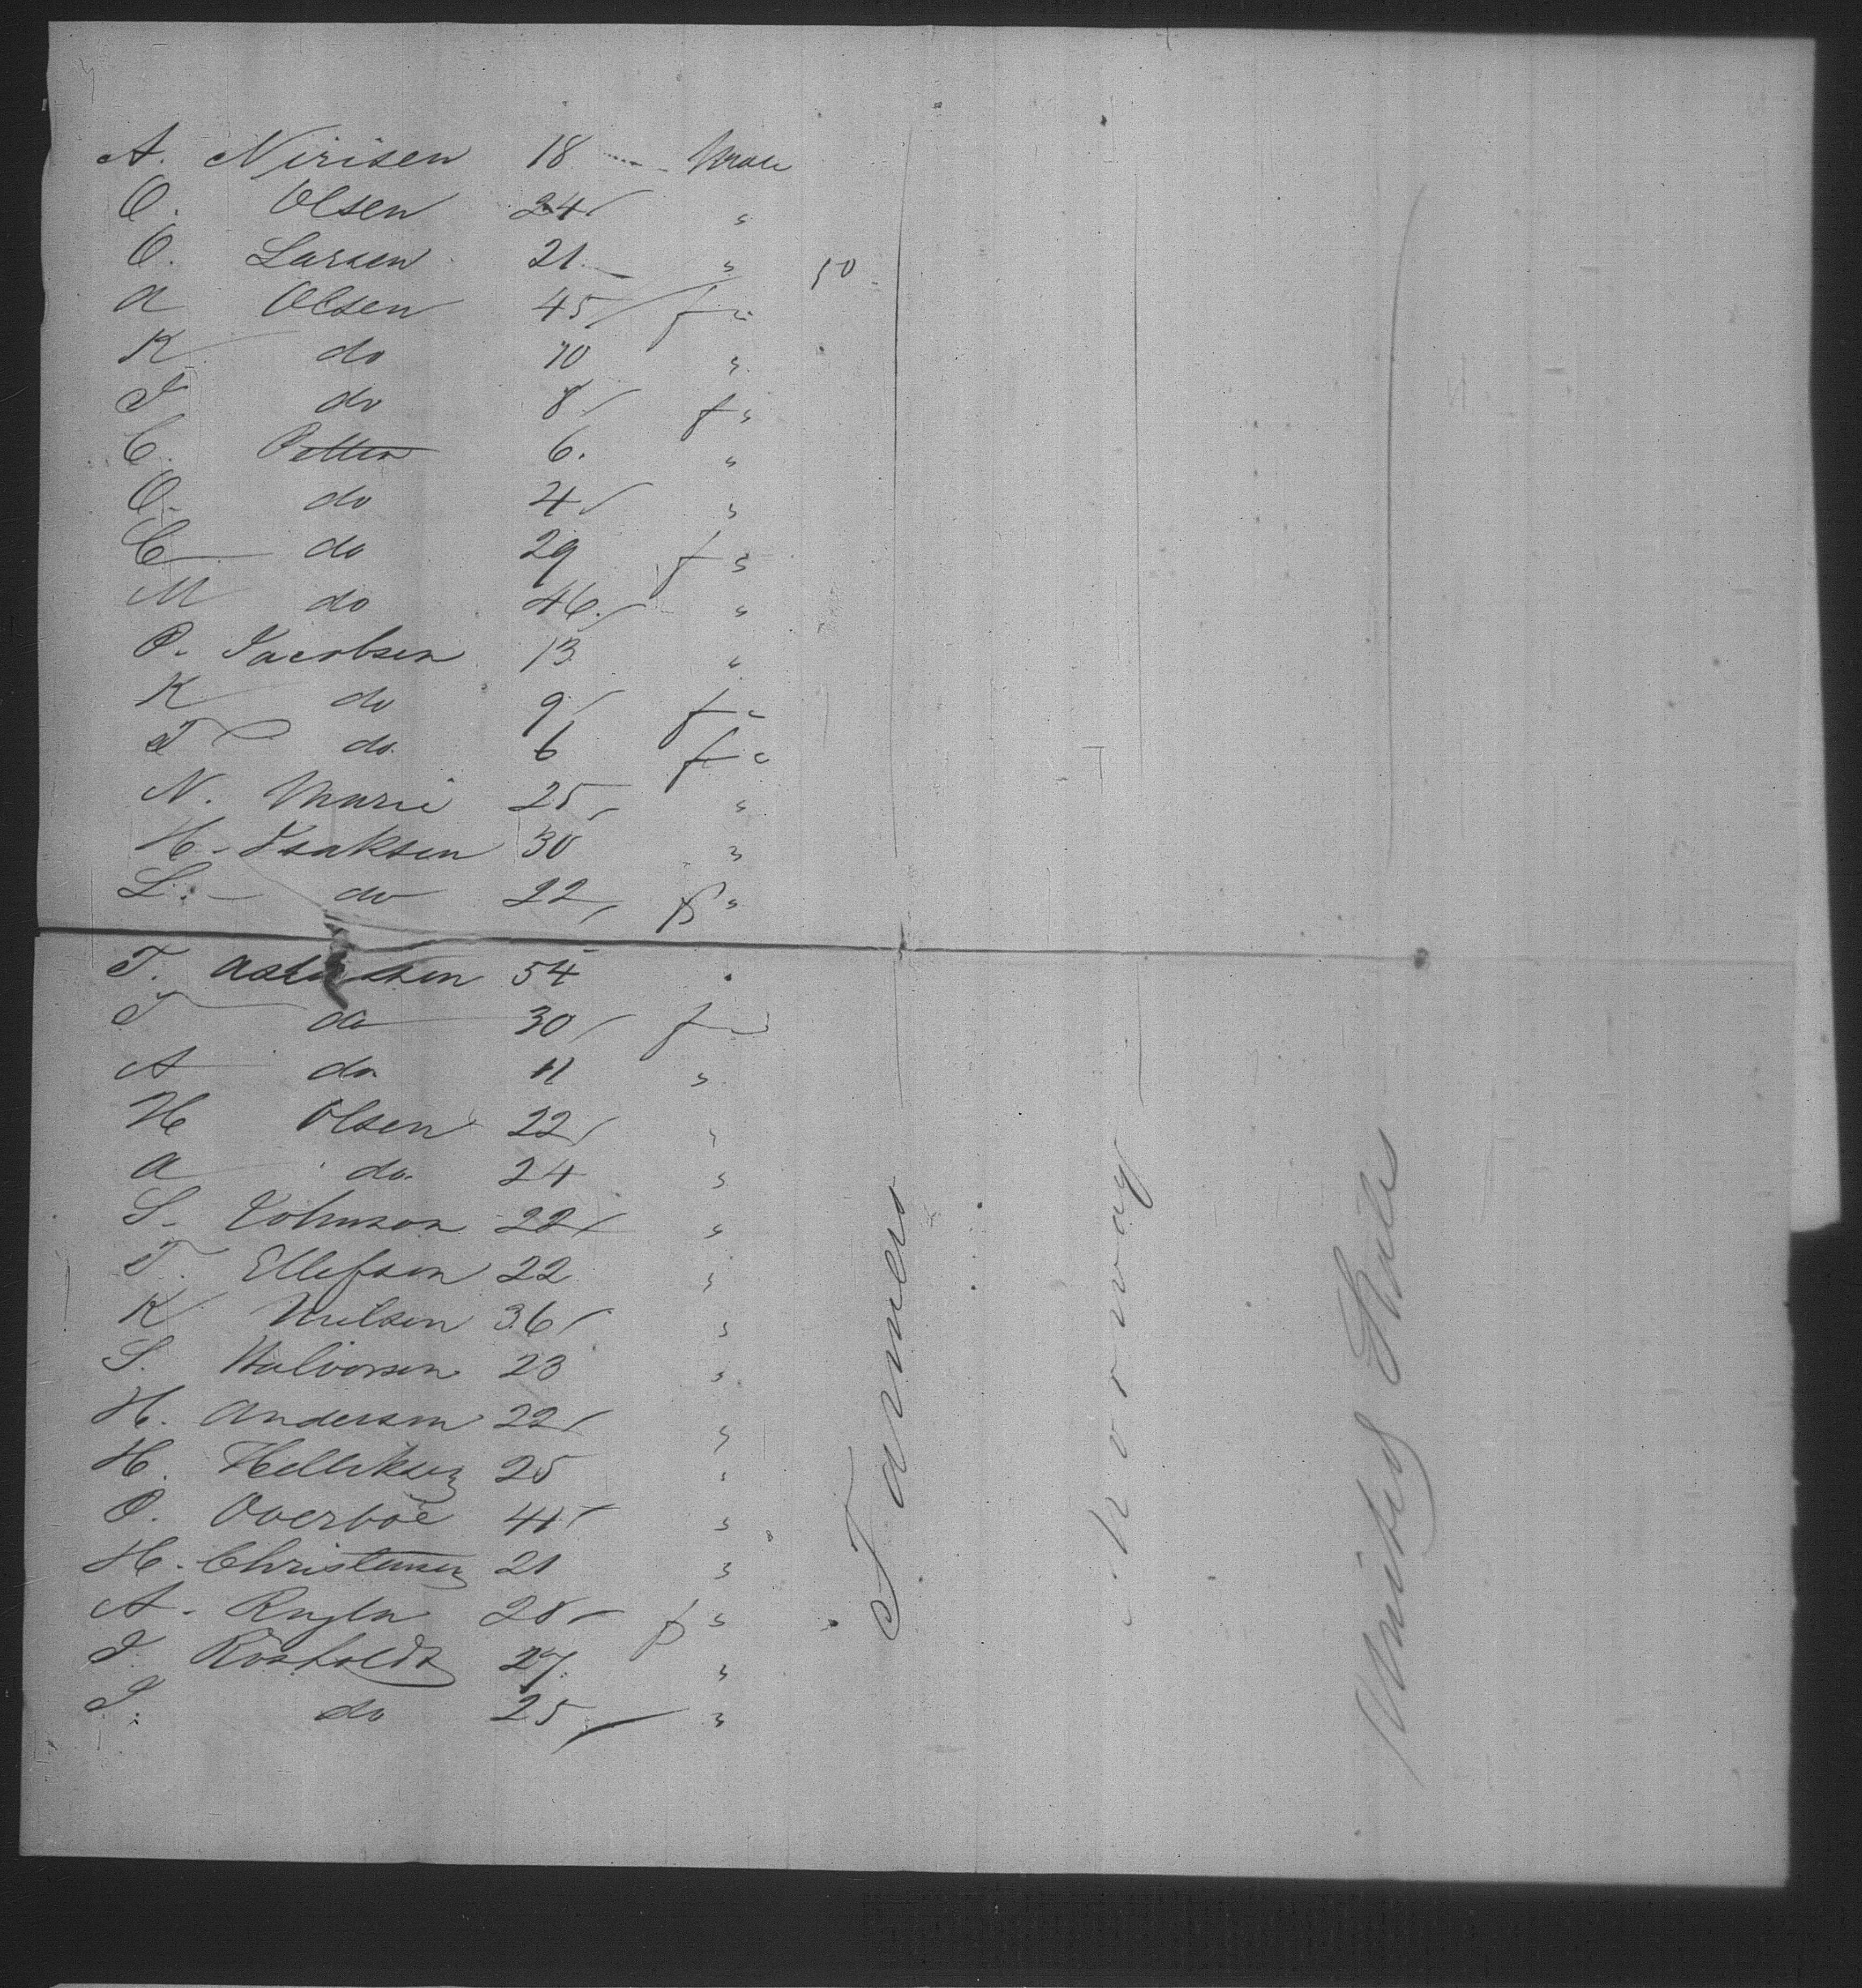 A. Nirisen 18 .... Male
O. Olsen 24 "
O. Larsen 21 " 50
A Olsen 45 f "
K do 10 "
T do 8 f "
C. Petter 6. "
O. do 4 "
C do 29 f "
M do 46. "
O. Jacobsen 13 "
K do 9 f "
T do. 6 f "
N. Marie 25 "
H. Isaksen 30 "
L. do 22 f "
T. 54 "
T do 30 f "
A do 11 "
H Olsen 22 "
A do. 24 "
S. Johnson 22 "
T. Ellefsen 22 "
K Nielsen 36 "
S. Halvorsen 23 "
H. Andersen 22 "
H. Helliksen 25 "
O. Overboe 41 "
H. Christensen 21 "
A. 28 f "
T. Rosholdt 27. "
T. do 25 "
Farmers
Norway
United States